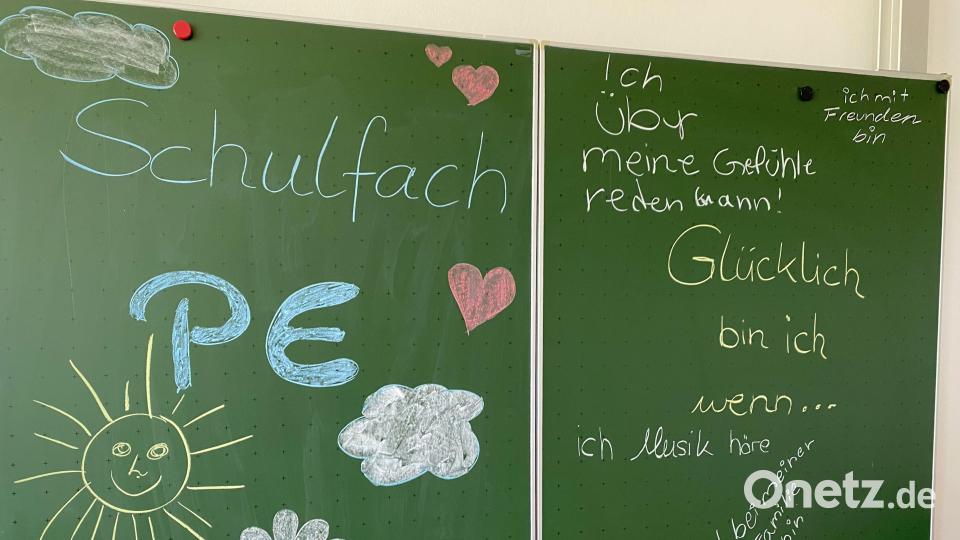 Schulfach
PE
ich
Über
meine Gefühle
reden kann!
ich mit
Freunden
bin
Glücklich
bin ich
wenn...
ich Musik höre
bei meiner
bin
Onetz.de